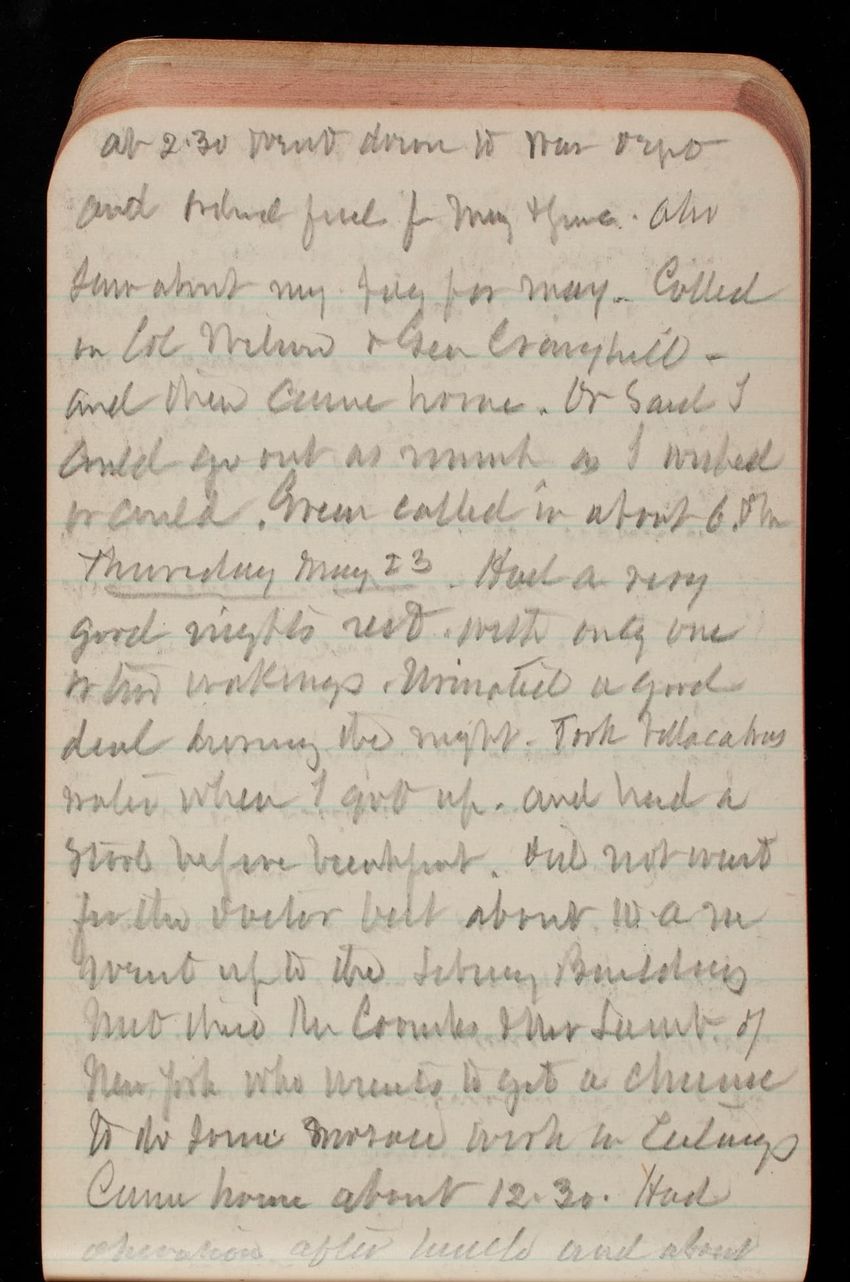 at 2.30 went down to War Dept
and ordered fuel for May & June. Also
saw about my pay for May. Called
on Col Wilson & Gen Craighill -
and then came home. Dr Said I
could go out as much as I wished
or could. Green called in about 6. PM
Thursday May 23. Had a very
good nights rest. with only one
or two wakings. Urinated a good
deal during the night. Took Villacabras
water when I got up. and had a
Stool before breakfast. Did not wait
for the doctor but about 10 a m
Went up to the Library Building
Met there Mr Coombs & Mr Lamb of
New York who wants to get a chance
to do some Mosaic work in Ceilings
Came home about 12.30. Had
after lunch and about